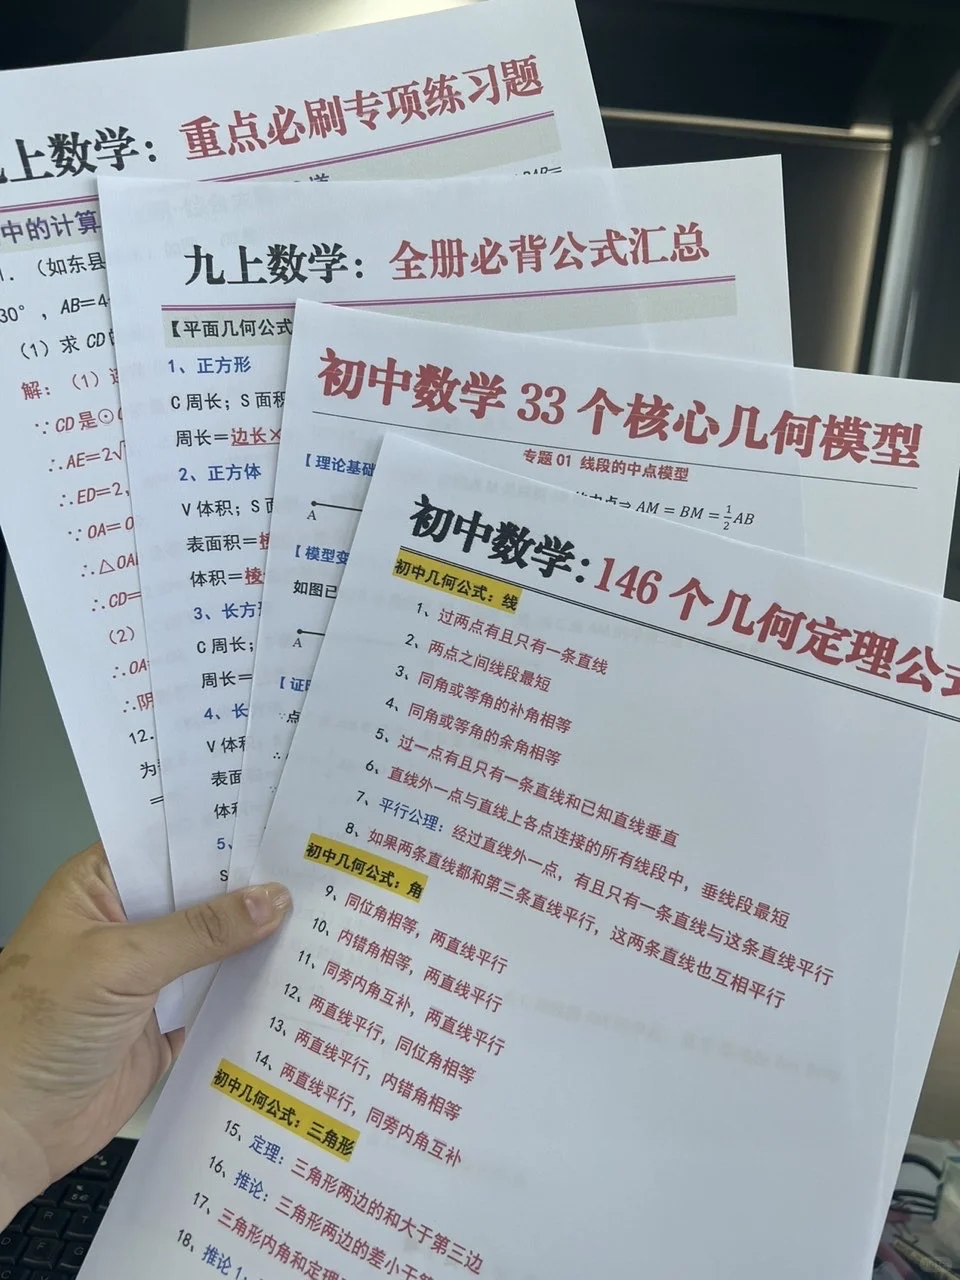 九上数学：重点必刷专项练习题
中的计算
1. （如东县
30°，AB=4
（1）求 CD
解：（1）
∵CD 是⊙
∴AE=2√
∴ED=2，
∵OA=O
∴△OA
∴CD=
（2）
∴OA
∴阴
12.
为
=
九上数学：全册必背公式汇总
【平面几何公式
1、正方形
C 周长；S 面积
周长=边长×
2、正方体
V 体积；S 面
表面积=棱
体积=棱
3、长方形
C 周长；
周长=
4、长
V 体积
表面
体积
5、
S
初中数学 33 个核心几何模型
专题 01 线段的中点模型
【理论基础
中点⇒ AM = BM = 1/2 AB
A
【模型变
如图已
A
【证明
∵点
∴
初中数学：146 个几何定理公式
初中几何公式：线
1、过两点有且只有一条直线
2、两点之间线段最短
3、同角或等角的补角相等
4、同角或等角的余角相等
5、过一点有且只有一条直线和已知直线垂直
6、直线外一点与直线上各点连接的所有线段中，垂线段最短
7、平行公理：经过直线外一点，有且只有一条直线与这条直线平行
8、如果两条直线都和第三条直线平行，这两条直线也互相平行
初中几何公式：角
9、同位角相等，两直线平行
10、内错角相等，两直线平行
11、同旁内角互补，两直线平行
12、两直线平行，同位角相等
13、两直线平行，内错角相等
14、两直线平行，同旁内角互补
初中几何公式：三角形
15、定理：三角形两边的和大于第三边
16、推论：三角形两边的差小于第
17、三角形内角和定理
18、推论 1：